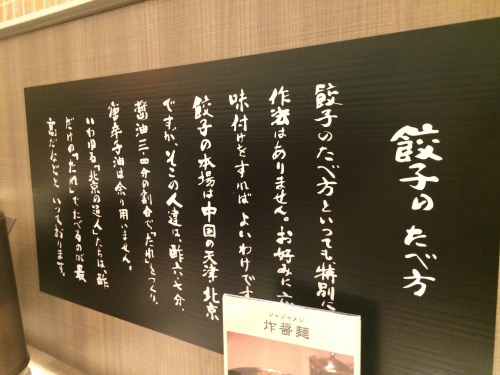 餃子のたべ方
餃子のたべ方といっても特別に
作法はありません。お好みに
味付けをすればよいわけです
餃子の本場は中国の天津、北京
ですが、そこの人達は、酢六、七分、
醤油三、四分の割合で「だれ」をつくり、
唐辛子油は余り用いません。
いわゆる「北京の達人」たちは、酢
だけの「たれ」でたべるのが最
高だなどといっております。
ジャジャメン
炸醤麺